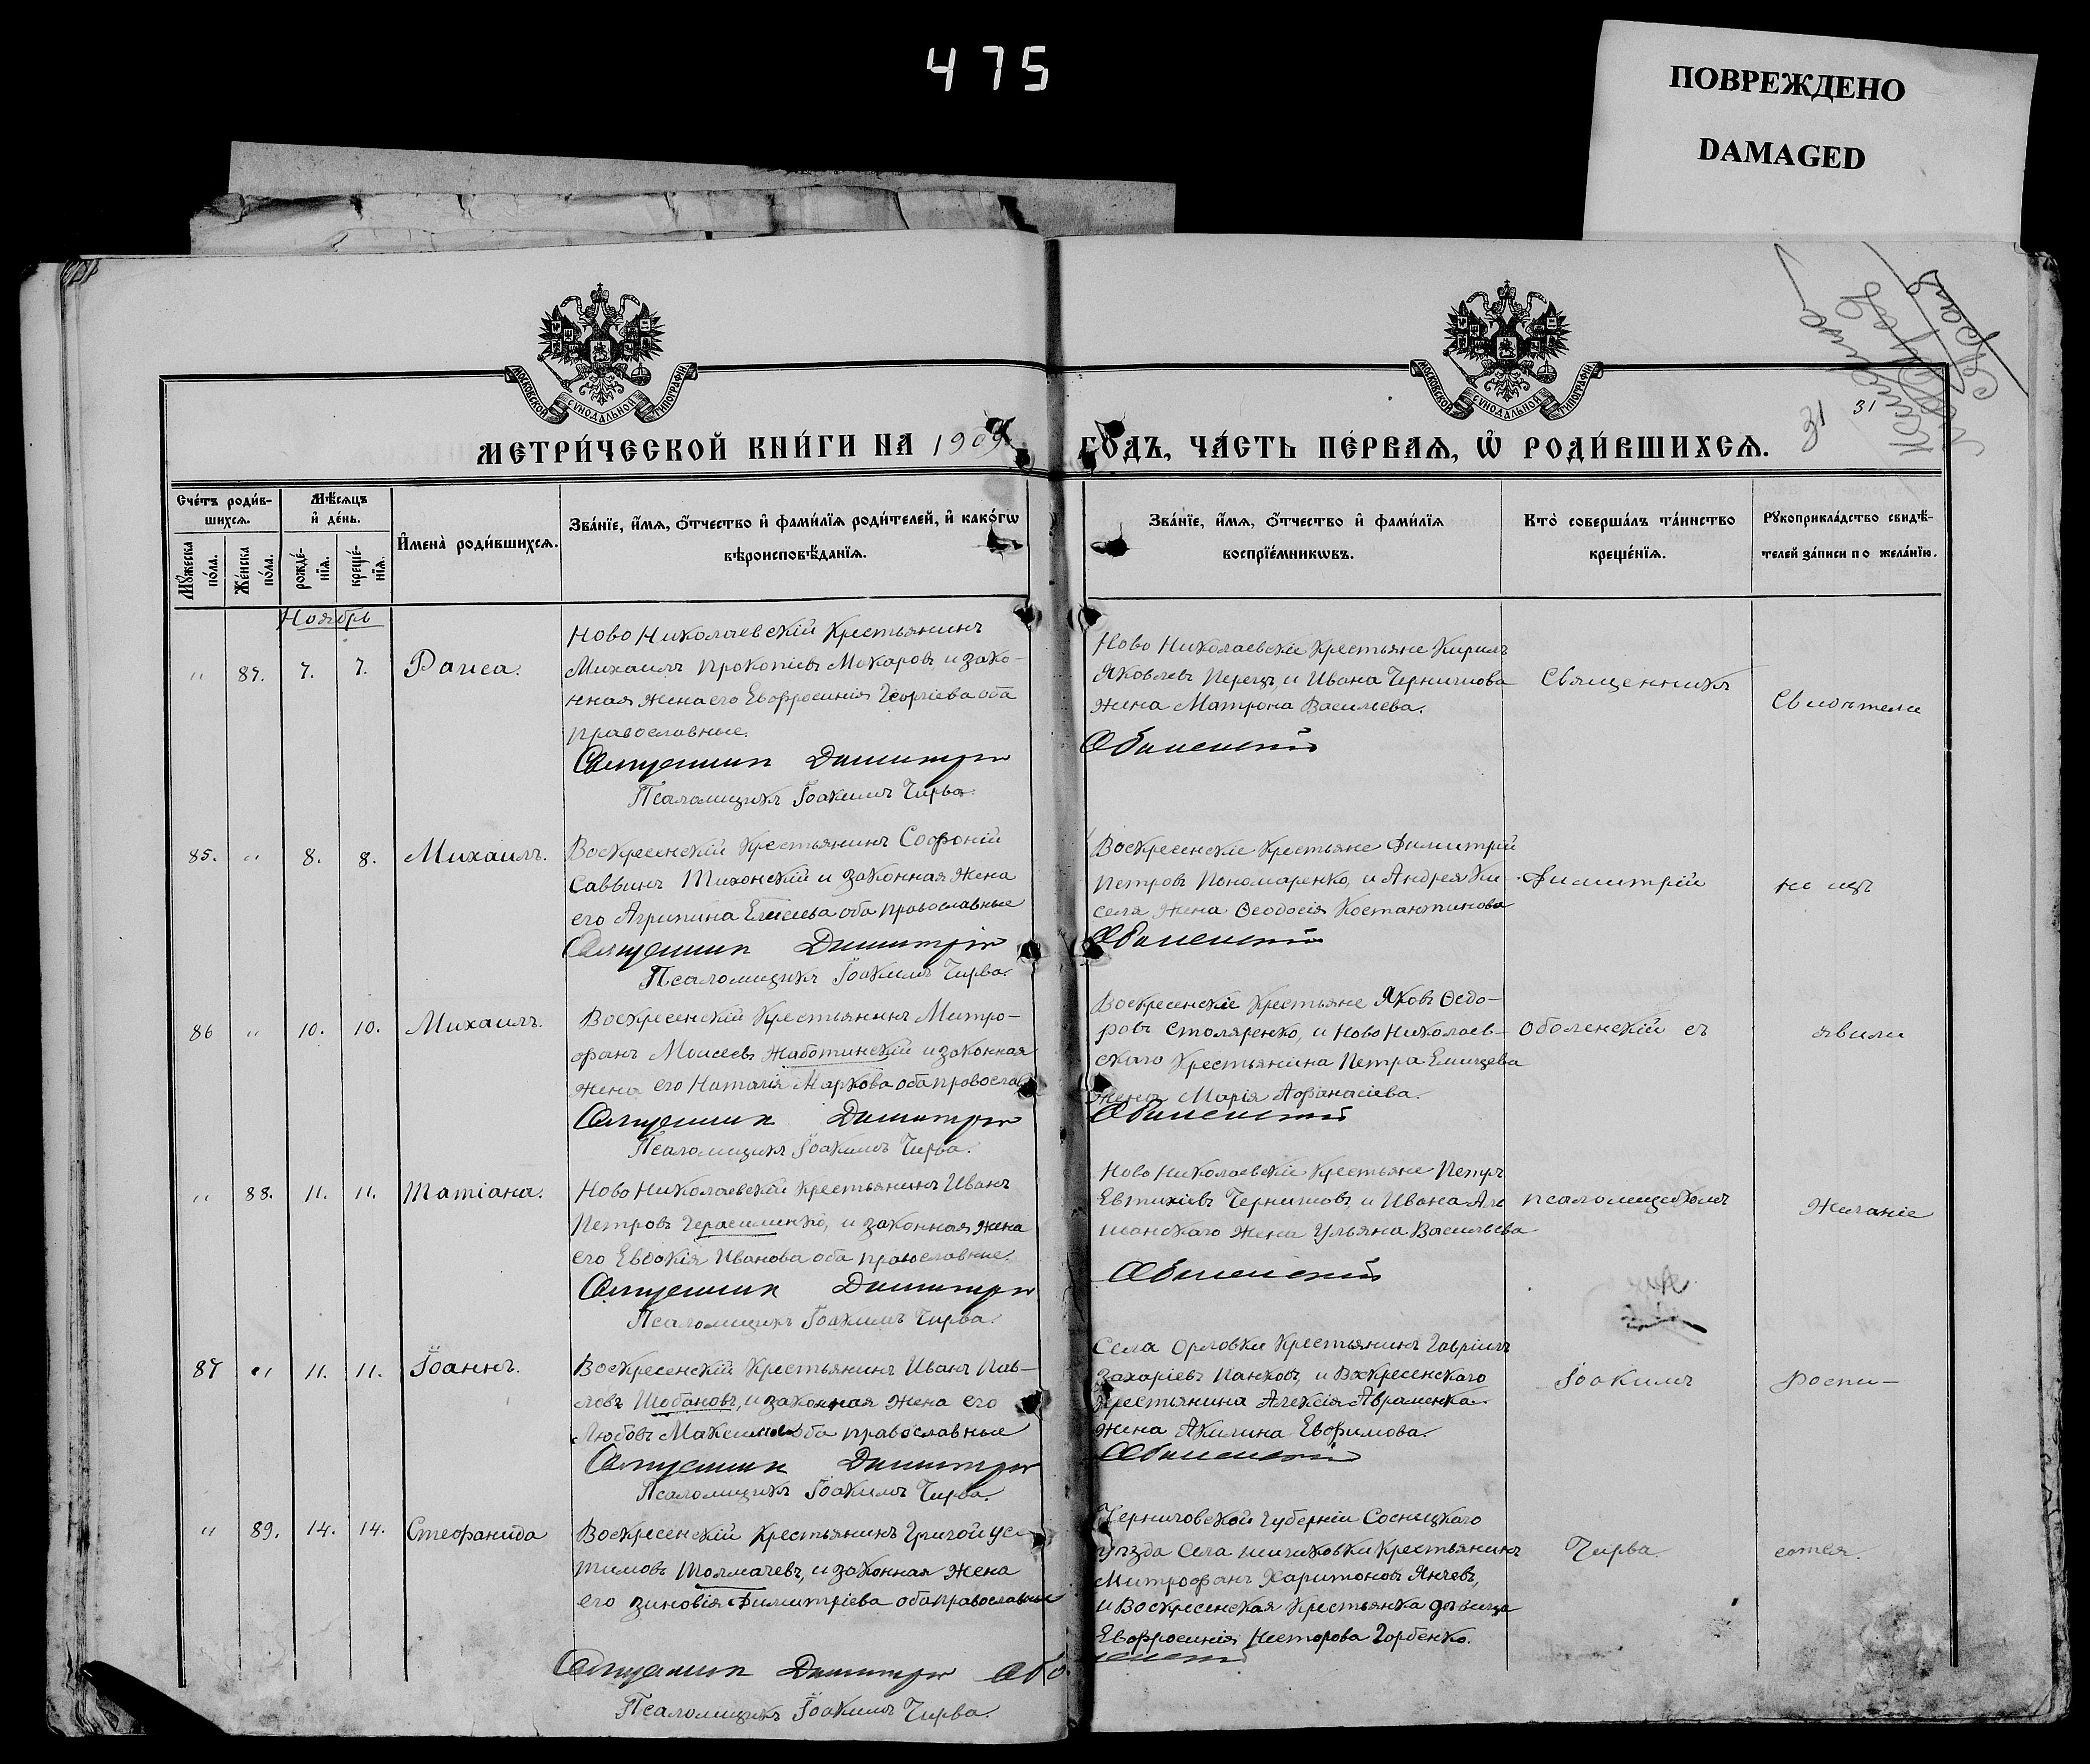 475
ПОВРЕЖДЕНО
DAMAGED
МОСКОВСКОЙ СѴНОДАЛЬНОЙ ТИПОГРАФІИ
МОСКОВСКОЙ СѴНОДАЛЬНОЙ ТИПОГРАФІИ
31
31
МЕТРИ́ЧЕСКОЙ КНИ́ГИ НА 1909
ГО́ДЪ, ЧА́СТЬ ПЕ́РВАѦ, Ѡ҆ РОДИ́ВШИХСѦ.
Сче́тъ роди́в-
шихсѧ.
Мꙋ́жеска по́ла.
Же́нска по́ла.
Мѣ́сѧцъ
и҆ де́нь.
рожде́-
нїѧ.
креще́-
нїѧ.
И҆мена̀ роди́вшихсѧ.
Зва́нїе, и҆́мѧ, о҆́тчество и҆ фами́лїѧ роди́телей, и҆ како́гѡ
вѣроисповѣ́данїѧ.
Зва́нїе, и҆́мѧ, о҆́тчество и҆ фами́лїѧ
воспрїе́мникѡвъ.
Кто̀ соверша́лъ та́инство
креще́нїѧ.
Рꙋкоприкла́дство свидѣ́-
телей за́писи по жела́нїю.
Ноябрь
" 87. 7. 7. Раиса.
Ново Николаевскій Крестьянинъ
Михаилъ Прокопіевъ Макаровъ, и зако-
нная жена его Евфросинія Георгіева оба
православные.
Священник Димитрій
Псаломщикъ Іоакимъ Чирва.
Ново Николаевскіе Крестьяне Кирилъ
Яковлевъ Перецъ, и Ивана Чернишова
жена Матрона Васильева.
Оболенский
Священникъ
Свидѣтели
85. " 8. 8. Михаилъ.
Воскресенскій Крестьянинъ Софроній
Саввинъ Тихонскій и законная жена
его Агрипина Елисіева оба православные
Священник Димитрій
Псаломщикъ Іоакимъ Чирва.
Воскресенскіе Крестьяне Димитрій
Петровъ Пономаренко, и Андрея Ки
селя жена Ѳеодосія Костантинова
Оболенский
Димитрій
не изъ
86 " 10. 10. Михаилъ.
Воскресенскій Крестьянинъ Митро-
фанъ Моисеевъ Жаботинскій и законная
жена его Наталія Маркова оба православ
Священник Димитрій
Псаломщикъ Іоакимъ Чирва.
Воскресенскіе Крестьяне Яковъ Ѳедо-
ровъ Столяренко, и Ново Николаев-
скаго Крестьянина Петра Емицева
жена Марія Афанасіева.
Оболенский
Оболенскій съ
явили
" 88. 11. 11. Татіана.
Ново Николаевскій Крестьянинъ Иванъ
Петровъ Герасименко, и законная жена
его Евдокія Иванова оба православные.
Священник Димитрій
Псаломщикъ Іоакимъ Чирва.
Ново Николаевскіе Крестьяне Петръ
Евтихіевъ Чернишовъ, и Ивана Але
шанскаго жена Ульяна Васильева
Оболенский
псаломщикомъ
Желаніе
87 " 11. 11. Іоаннъ.
Воскресенскій Крестьянинъ Иванъ Пав-
ловъ Шобановъ, и законная жена его
Любовь Максимова оба православные
Священник Димитрій
Псаломщикъ Іоакимъ Чирва.
Села Орловки Крестьянинъ Гавріилъ
Захаріевъ Панковъ, и Вскресенскаго
Крестьянина Алексія Авраменка
жена Акилина Евфимова.
Оболенский
Іоакимъ
роспи-
" 89. 14. 14. Стефанида
Воскресенскій Крестьянинъ Григорій Ус-
тимовъ Толмачевъ, и законная жена
его Зиновія Димитріева оба православные
Священник Димитрій Обо
Псаломщикъ Іоакимъ Чирва.
Черниговской Губерніи Сосницкаго
уѣзда Села Крестьянинъ
Митрофанъ Харитоновъ Янчевъ,
и Воскресенская Крестьянка дѣвица
Евфросинія Несторова Горбенко.
ленский
Чирва.
сатся.